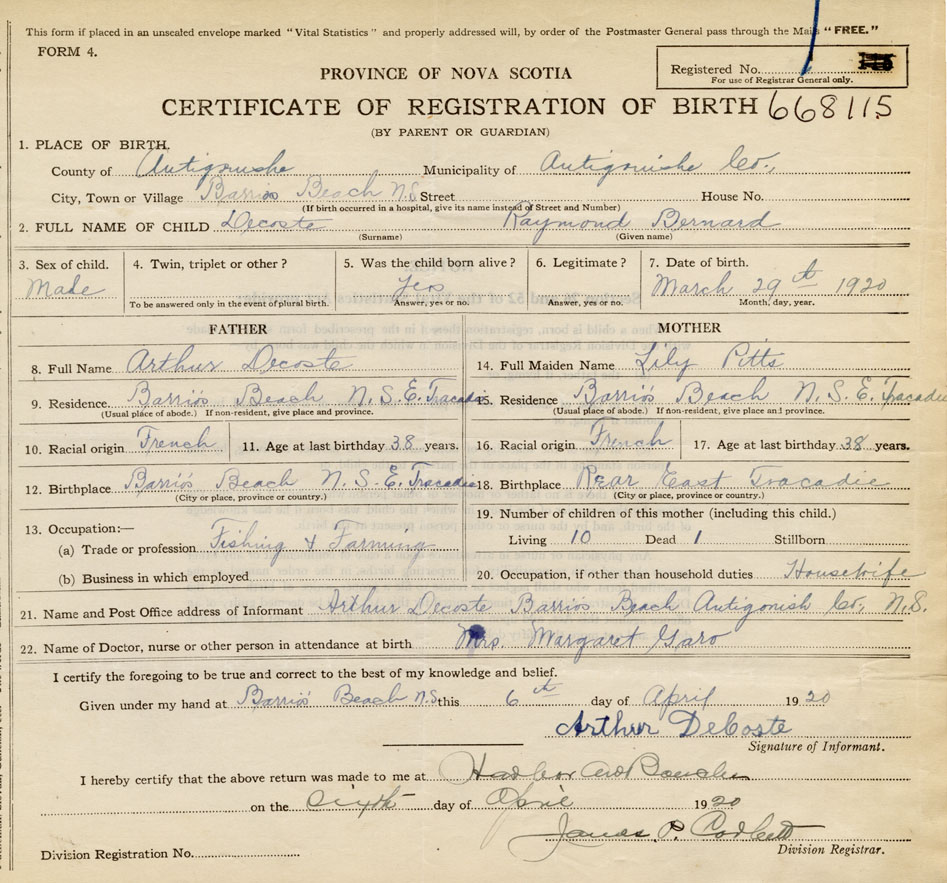 This form if placed in an unsealed envelope marked "Vital Statistics" and properly addressed will, by order of the Postmaster General pass through the Mails "FREE."
FORM 4.
Registered No.
For use of Registrar General only.
PROVINCE OF NOVA SCOTIA
CERTIFICATE OF REGISTRATION OF BIRTH 668115
(BY PARENT OR GUARDIAN)
1. PLACE OF BIRTH.
County of Antigonishe Municipality of Antigonishe Co.,
City, Town or Village Barrios Beach N.S Street House No.
(If birth occurred in a hospital, give its name instead of Street and Number)
2. FULL NAME OF CHILD Decoste Raymond Bernard
(Surname) (Given name)
3. Sex of child. 4. Twin, triplet or other? 5. Was the child born alive? 6. Legitimate? 7. Date of birth.
Male Yes March 29th 1920
To be answered only in the event of plural birth. Answer, yes or no. Answer, yes or no. Month, day, year.
FATHER MOTHER
8. Full Name Arthur Decoste 14. Full Maiden Name Lily Pitts
9. Residence. Barrios Beach N. S. E. Tracadie 15. Residence Barrios Beach N. S. E. Tracadie
(Usual place of abode.) If non-resident, give place and province. (Usual place of abode.) If non-resident, give place and province.
10. Racial origin French 11. Age at last birthday 38 years. 16. Racial origin French 17. Age at last birthday 38 years.
12. Birthplace Barrios Beach N. S. E. Tracadie 18. Birthplace Rear East Tracadie
(City or place, province or country.) (City or place, province or country.)
13. Occupation:— 19. Number of children of this mother (including this child.)
(a) Trade or profession Fishing & Farming Living 10 Dead 1 Stillborn
(b) Business in which employed 20. Occupation, if other than household duties Housewife
21. Name and Post Office address of Informant Arthur Decoste Barrios Beach Antigonish Co, N.S.
22. Name of Doctor, nurse or other person in attendance at birth Mrs. Margaret Garo
I certify the foregoing to be true and correct to the best of my knowledge and belief.
Given under my hand at Barrios Beach N.S this 6th day of April 1920
Arthur DeCoste
Signature of Informant.
I hereby certify that the above return was made to me at Harbor au Bouche
on the sixth day of April 1920
James P. Corbett
Division Registrar.
Division Registration No.